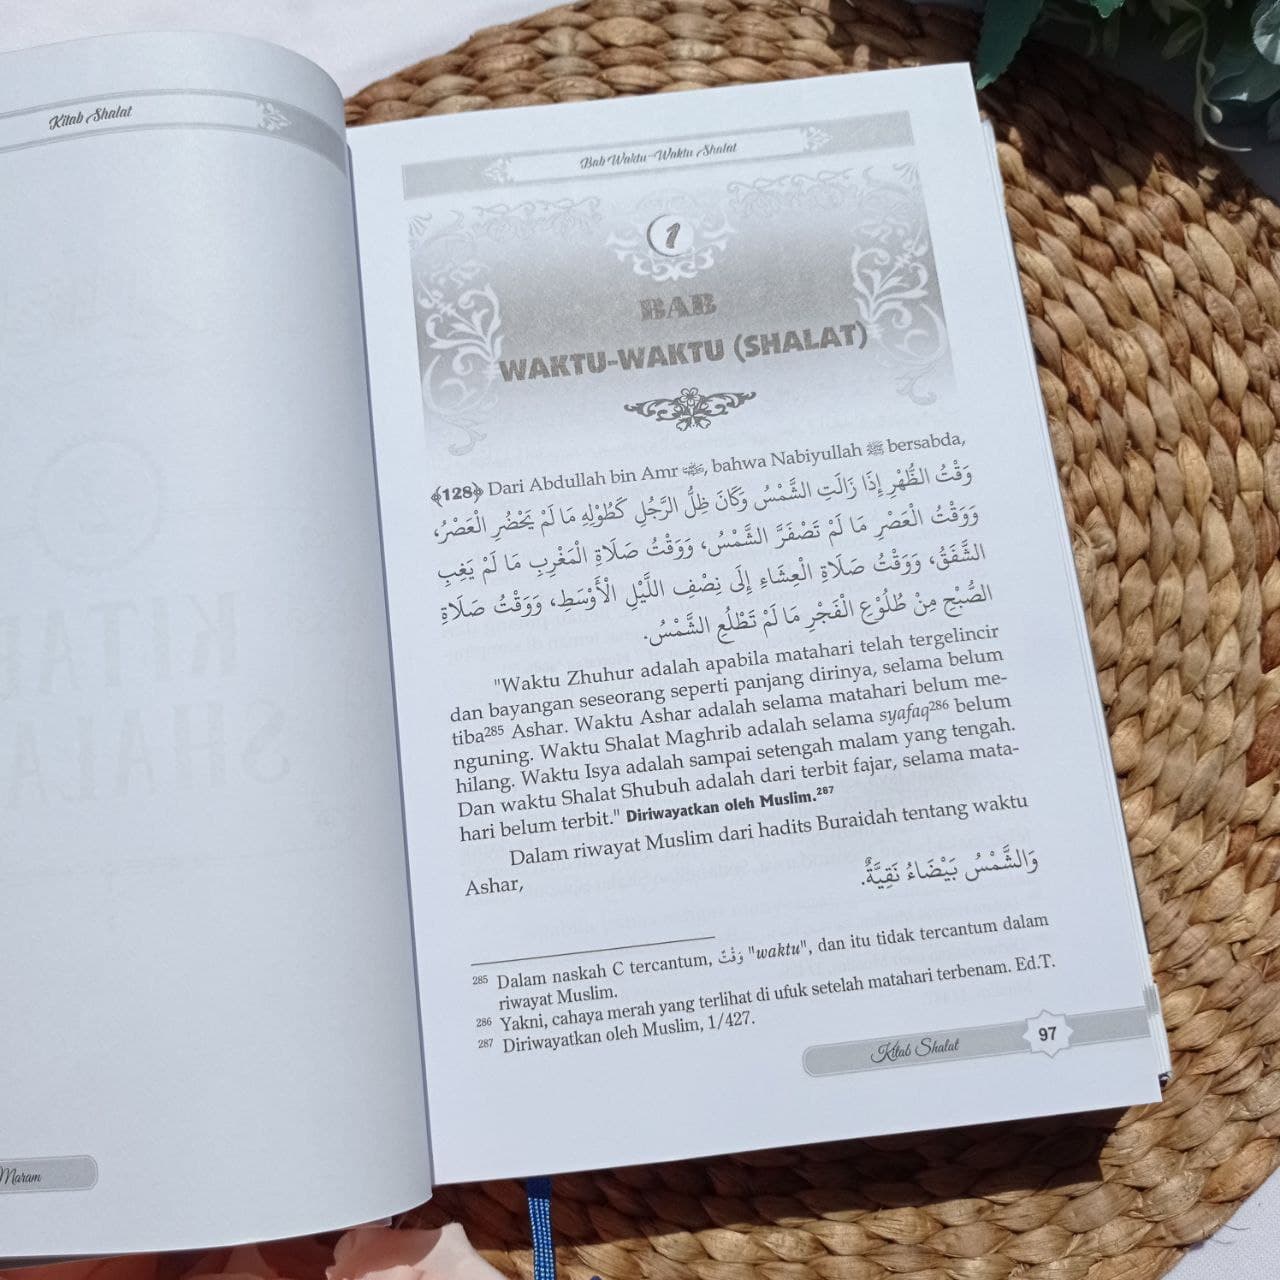 Kitab Shalat
Maram
Bab Waktu-Waktu Shalat
1
BAB
WAKTU-WAKTU (SHALAT)
﴾128﴿ Dari Abdullah bin Amr, bahwa Nabiyullah ﷺ bersabda,
وَقْتُ الظُّهْرِ إِذَا زَالَتِ الشَّمْسُ وَكَانَ ظِلُّ الرَّجُلِ كَطُوْلِهِ مَا لَمْ يَحْضُرِ الْعَصْرُ،
وَوَقْتُ الْعَصْرِ مَا لَمْ تَصْفَرَّ الشَّمْسُ، وَوَقْتُ صَلَاةِ الْمَغْرِبِ مَا لَمْ يَغِبِ
الشَّفَقُ، وَوَقْتُ صَلَاةِ الْعِشَاءِ إِلَى نِصْفِ اللَّيْلِ الْأَوْسَطِ، وَوَقْتُ صَلَاةِ
الصُّبْحِ مِنْ طُلُوْعِ الْفَجْرِ مَا لَمْ تَطْلُعِ الشَّمْسُ.
"Waktu Zhuhur adalah apabila matahari telah tergelincir
dan bayangan seseorang seperti panjang dirinya, selama belum
tiba²⁸⁵ Ashar. Waktu Ashar adalah selama matahari belum me-
nguning. Waktu Shalat Maghrib adalah selama syafaq²⁸⁶ belum
hilang. Waktu Isya adalah sampai setengah malam yang tengah.
Dan waktu Shalat Shubuh adalah dari terbit fajar, selama mata-
hari belum terbit." Diriwayatkan oleh Muslim.²⁸⁷
Dalam riwayat Muslim dari hadits Buraidah tentang waktu
Ashar,
وَالشَّمْسُ بَيْضَاءُ نَقِيَّةٌ.
²⁸⁵ Dalam naskah C tercantum, وَقْتُ "waktu", dan itu tidak tercantum dalam
riwayat Muslim.
²⁸⁶ Yakni, cahaya merah yang terlihat di ufuk setelah matahari terbenam. Ed.T.
²⁸⁷ Diriwayatkan oleh Muslim, 1/427.
Kitab Shalat
97